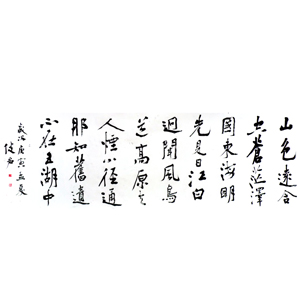 山色遠含
空蒼茫澤
國東海明
先見日江白
迴聞風鳥
道高原去
人煙小徑通
那知舊遺
不在五湖中
歲次庚寅立夏